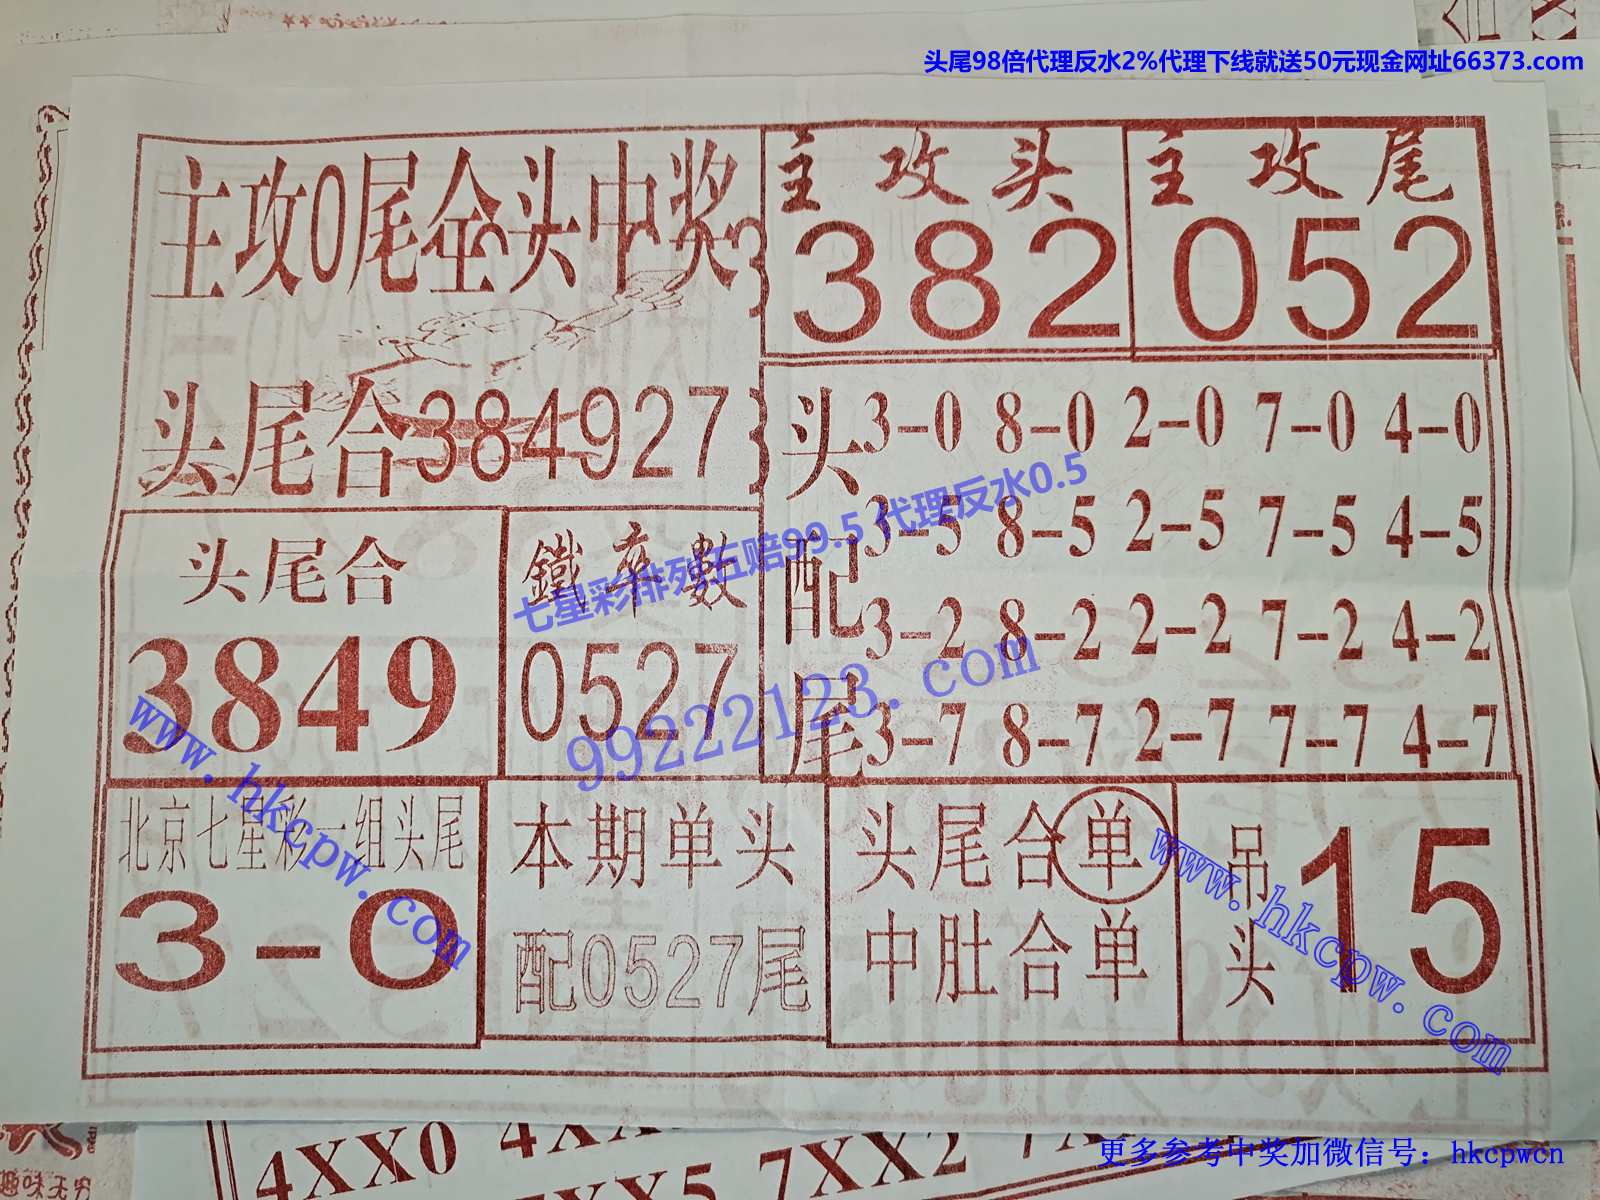 头尾98倍代理反水2%代理下线就送50元现金网址66373.com
主攻0尾全头中奖
主攻头
382
主攻尾
052
头尾合384927
头配尾
3-0 8-0 2-0 7-0 4-0
3-5 8-5 2-5 7-5 4-5
3-2 8-2 2-2 7-2 4-2
3-7 8-7 2-7 7-7 4-7
头尾合
3849
鐵率數
0527
七星彩排列五赔99.5 代理反水0.5
99222123.com
www.hkcpw.com
北京七星彩一组头尾
3-0
本期单头
配0527尾
头尾合单
中肚合单
吊头
15
www.hkcpw.com
4XX0
7XX2
更多参考中奖加微信号：hkcpwcn
趣味无穷